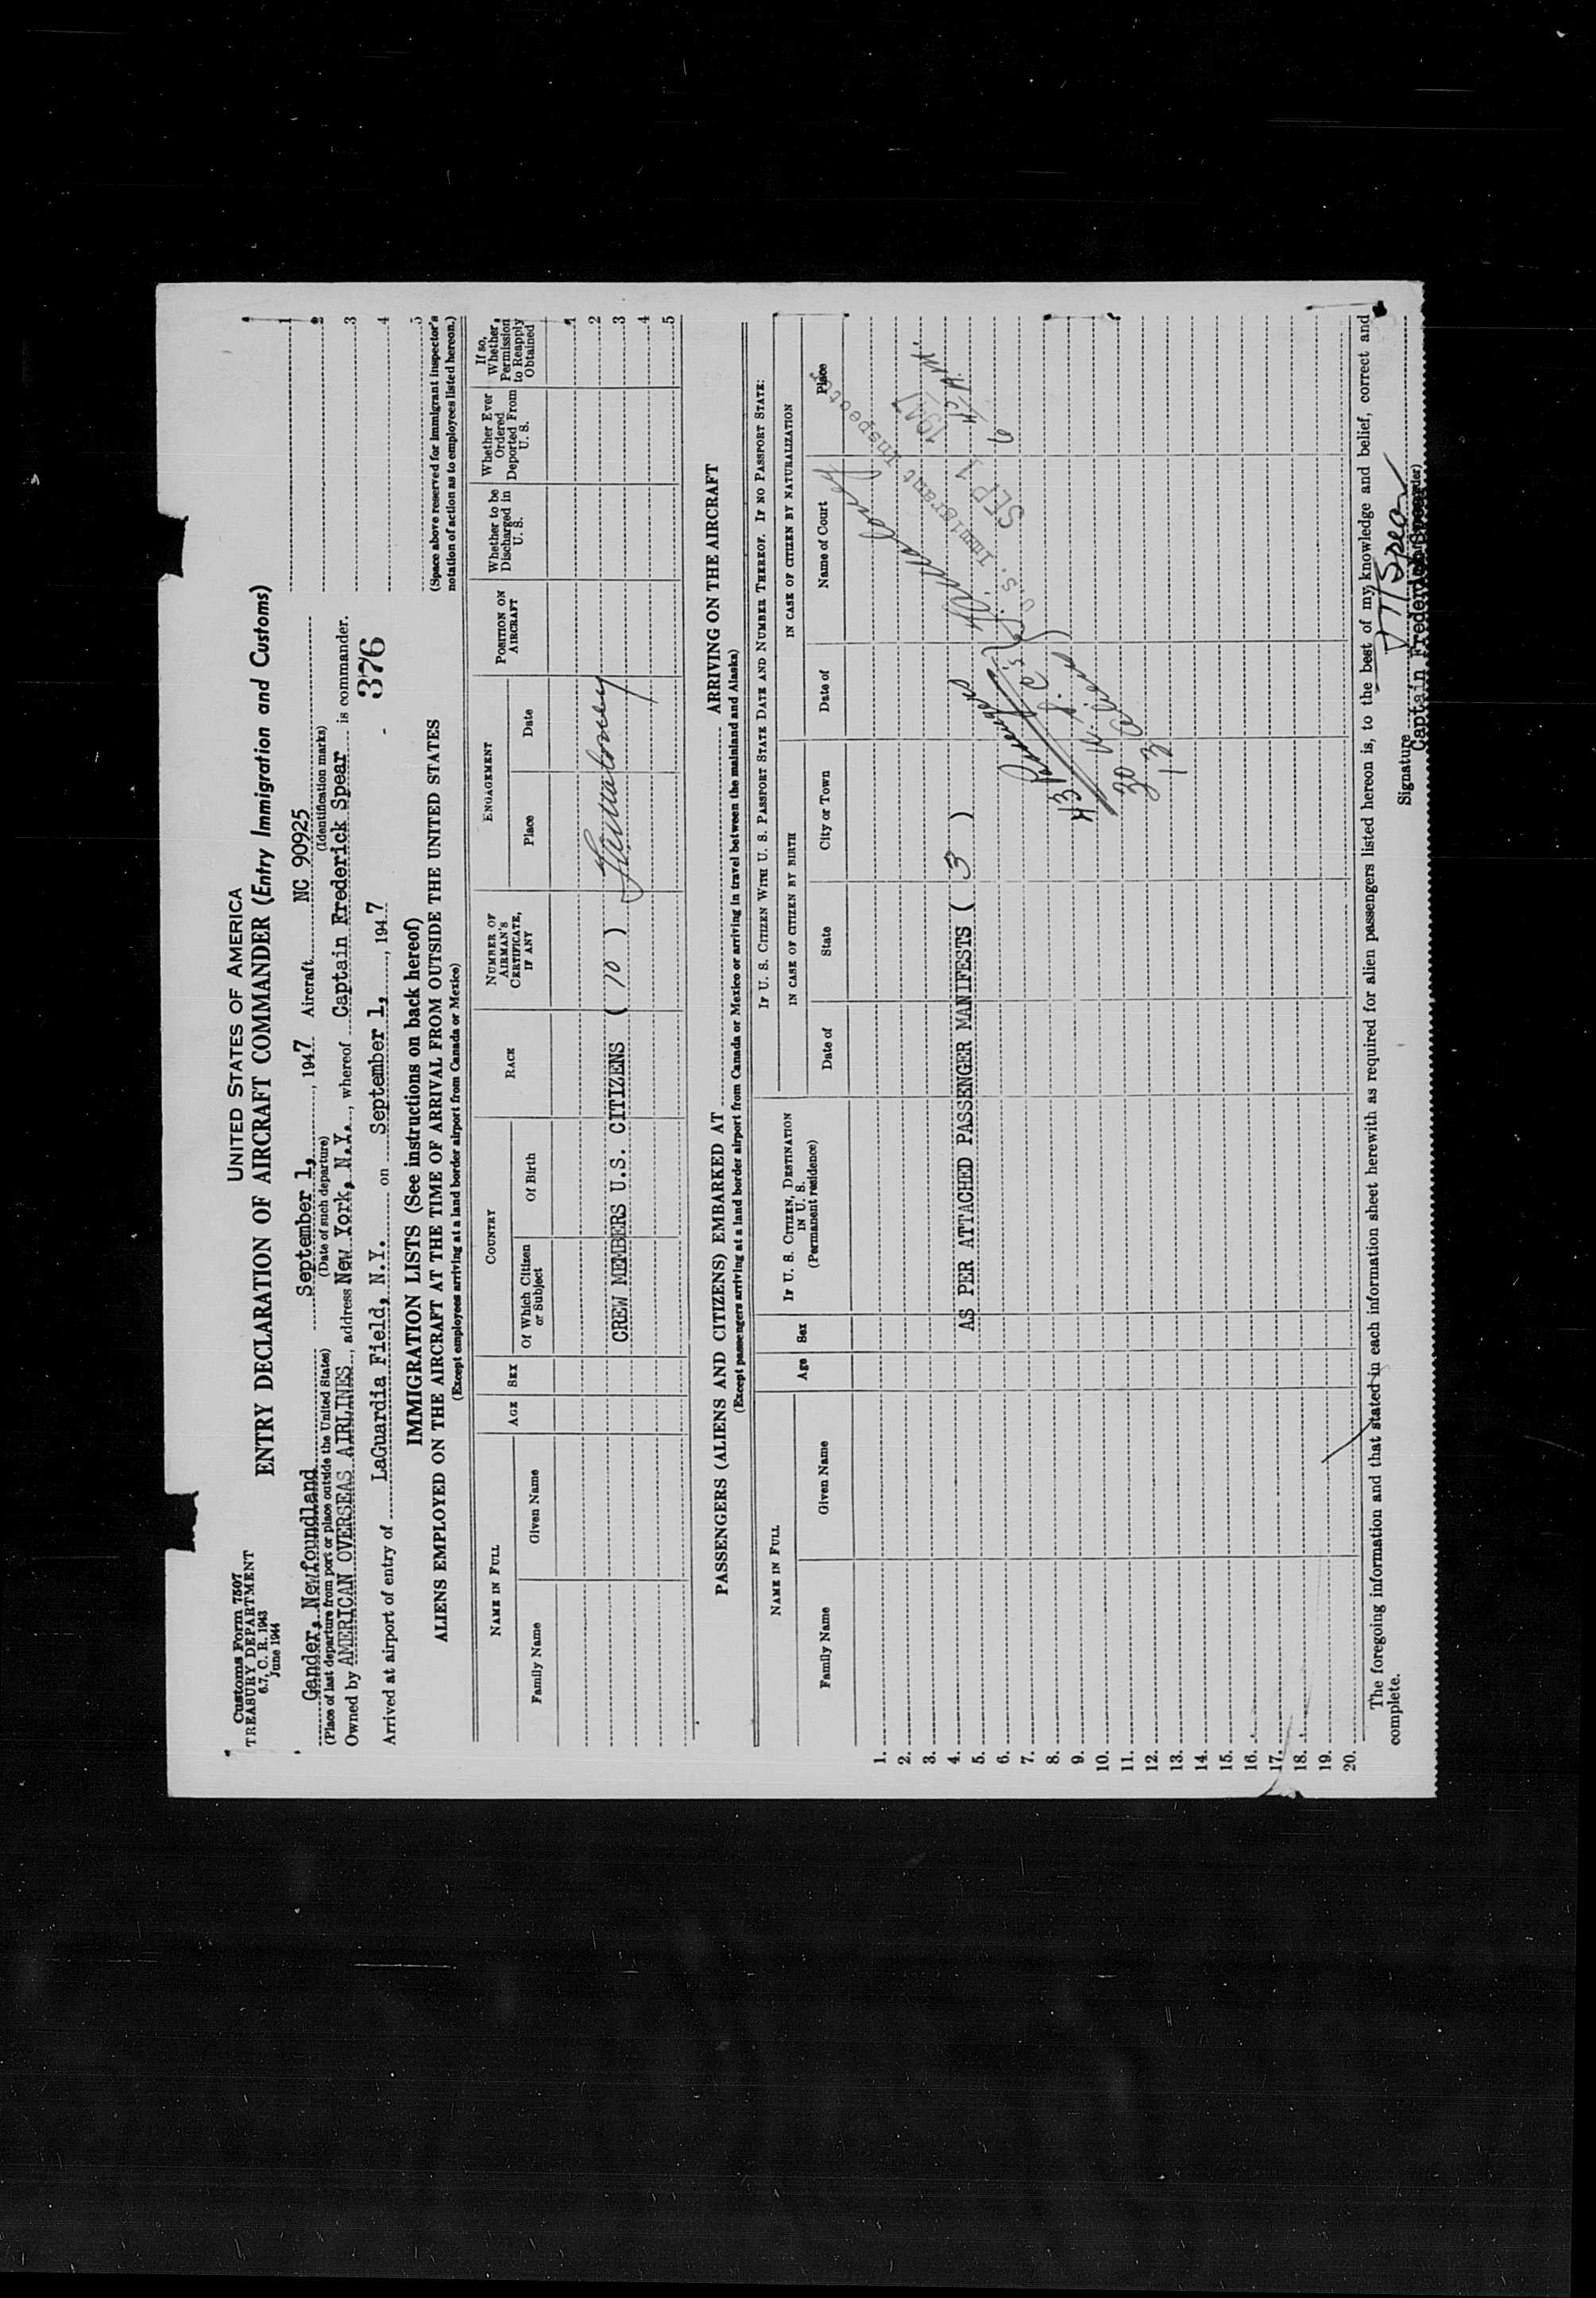 Customs Form 7507
TREASURY DEPARTMENT
6.7, C. R. 1943
June 1944
UNITED STATES OF AMERICA
ENTRY DECLARATION OF AIRCRAFT COMMANDER (Entry Immigration and Customs)
Gander, Newfoundland September 1, , 1947 Aircraft NC 90925
(Place of last departure from port or place outside the United States) (Date of such departure) (Identification marks)
Owned by AMERICAN OVERSEAS AIRLINES, address New York, N.Y., whereof Captain Frederick Spear is commander.
Arrived at airport of entry of LaGuardia Field, N.Y. on September 1, , 1947
- 376
1
2
3
4
5
(Space above reserved for immigrant inspector's notation of action as to employees listed hereon.)
IMMIGRATION LISTS (See instructions on back hereof)
ALIENS EMPLOYED ON THE AIRCRAFT AT THE TIME OF ARRIVAL FROM OUTSIDE THE UNITED STATES
(Except employees arriving at a land border airport from Canada or Mexico)
NAME IN FULL
Family Name
Given Name
AGE
SEX
COUNTRY
Of Which Citizen or Subject
Of Birth
RACE
NUMBER OF AIRMAN'S CERTIFICATE, IF ANY
ENGAGEMENT
Place
Date
POSITION ON AIRCRAFT
Whether to be Discharged in U. S.
Whether Ever Ordered Deported From U. S.
If so, Whether Permission to Reapply Obtained
1
2
CREW MEMBERS U.S. CITIZENS ( 10 ) 3
4
5
PASSENGERS (ALIENS AND CITIZENS) EMBARKED AT ARRIVING ON THE AIRCRAFT
(Except passengers arriving at a land border airport from Canada or Mexico or arriving in travel between the mainland and Alaska)
NAME IN FULL
Family Name
Given Name
Age
Sex
IF U. S. CITIZEN, DESTINATION IN U. S.
(Permanent residence)
IF U. S. CITIZEN WITH U. S. PASSPORT STATE DATE AND NUMBER THEREOF. IF NO PASSPORT STATE:
IN CASE OF CITIZEN BY BIRTH
Date of
State
City or Town
IN CASE OF CITIZEN BY NATURALIZATION
Date of
Name of Court
Place
1.
2.
3.
4. AS PER ATTACHED PASSENGER MANIFESTS ( 3 )
5.
6.
7.
8.
9.
10.
11.
12.
13.
14.
15.
16.
17.
18.
19.
20.
U.S. Immigrant Inspector
SEP 1 1947
43
30
13
The foregoing information and that stated in each information sheet herewith as required for alien passengers listed hereon is, to the best of my knowledge and belief, correct and
complete.
Signature
Captain Frederick Spear